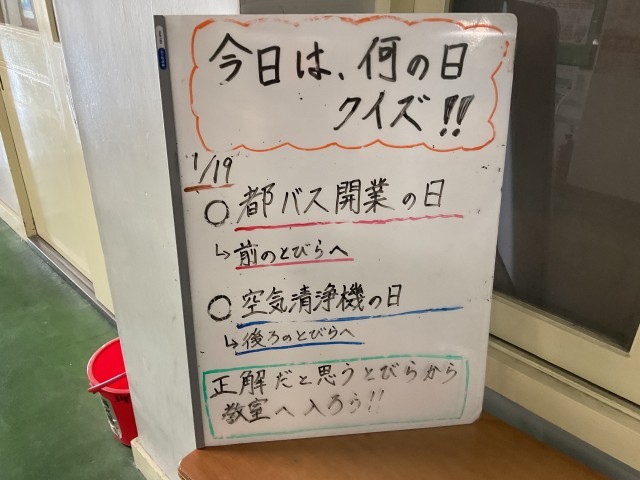 今日は、何の日
クイズ!!
1/19
○都バス開業の日
↳前のとびらへ
○空気清浄機の日
↳後ろのとびらへ
正解だと思うとびらから
教室へ入ろう!!